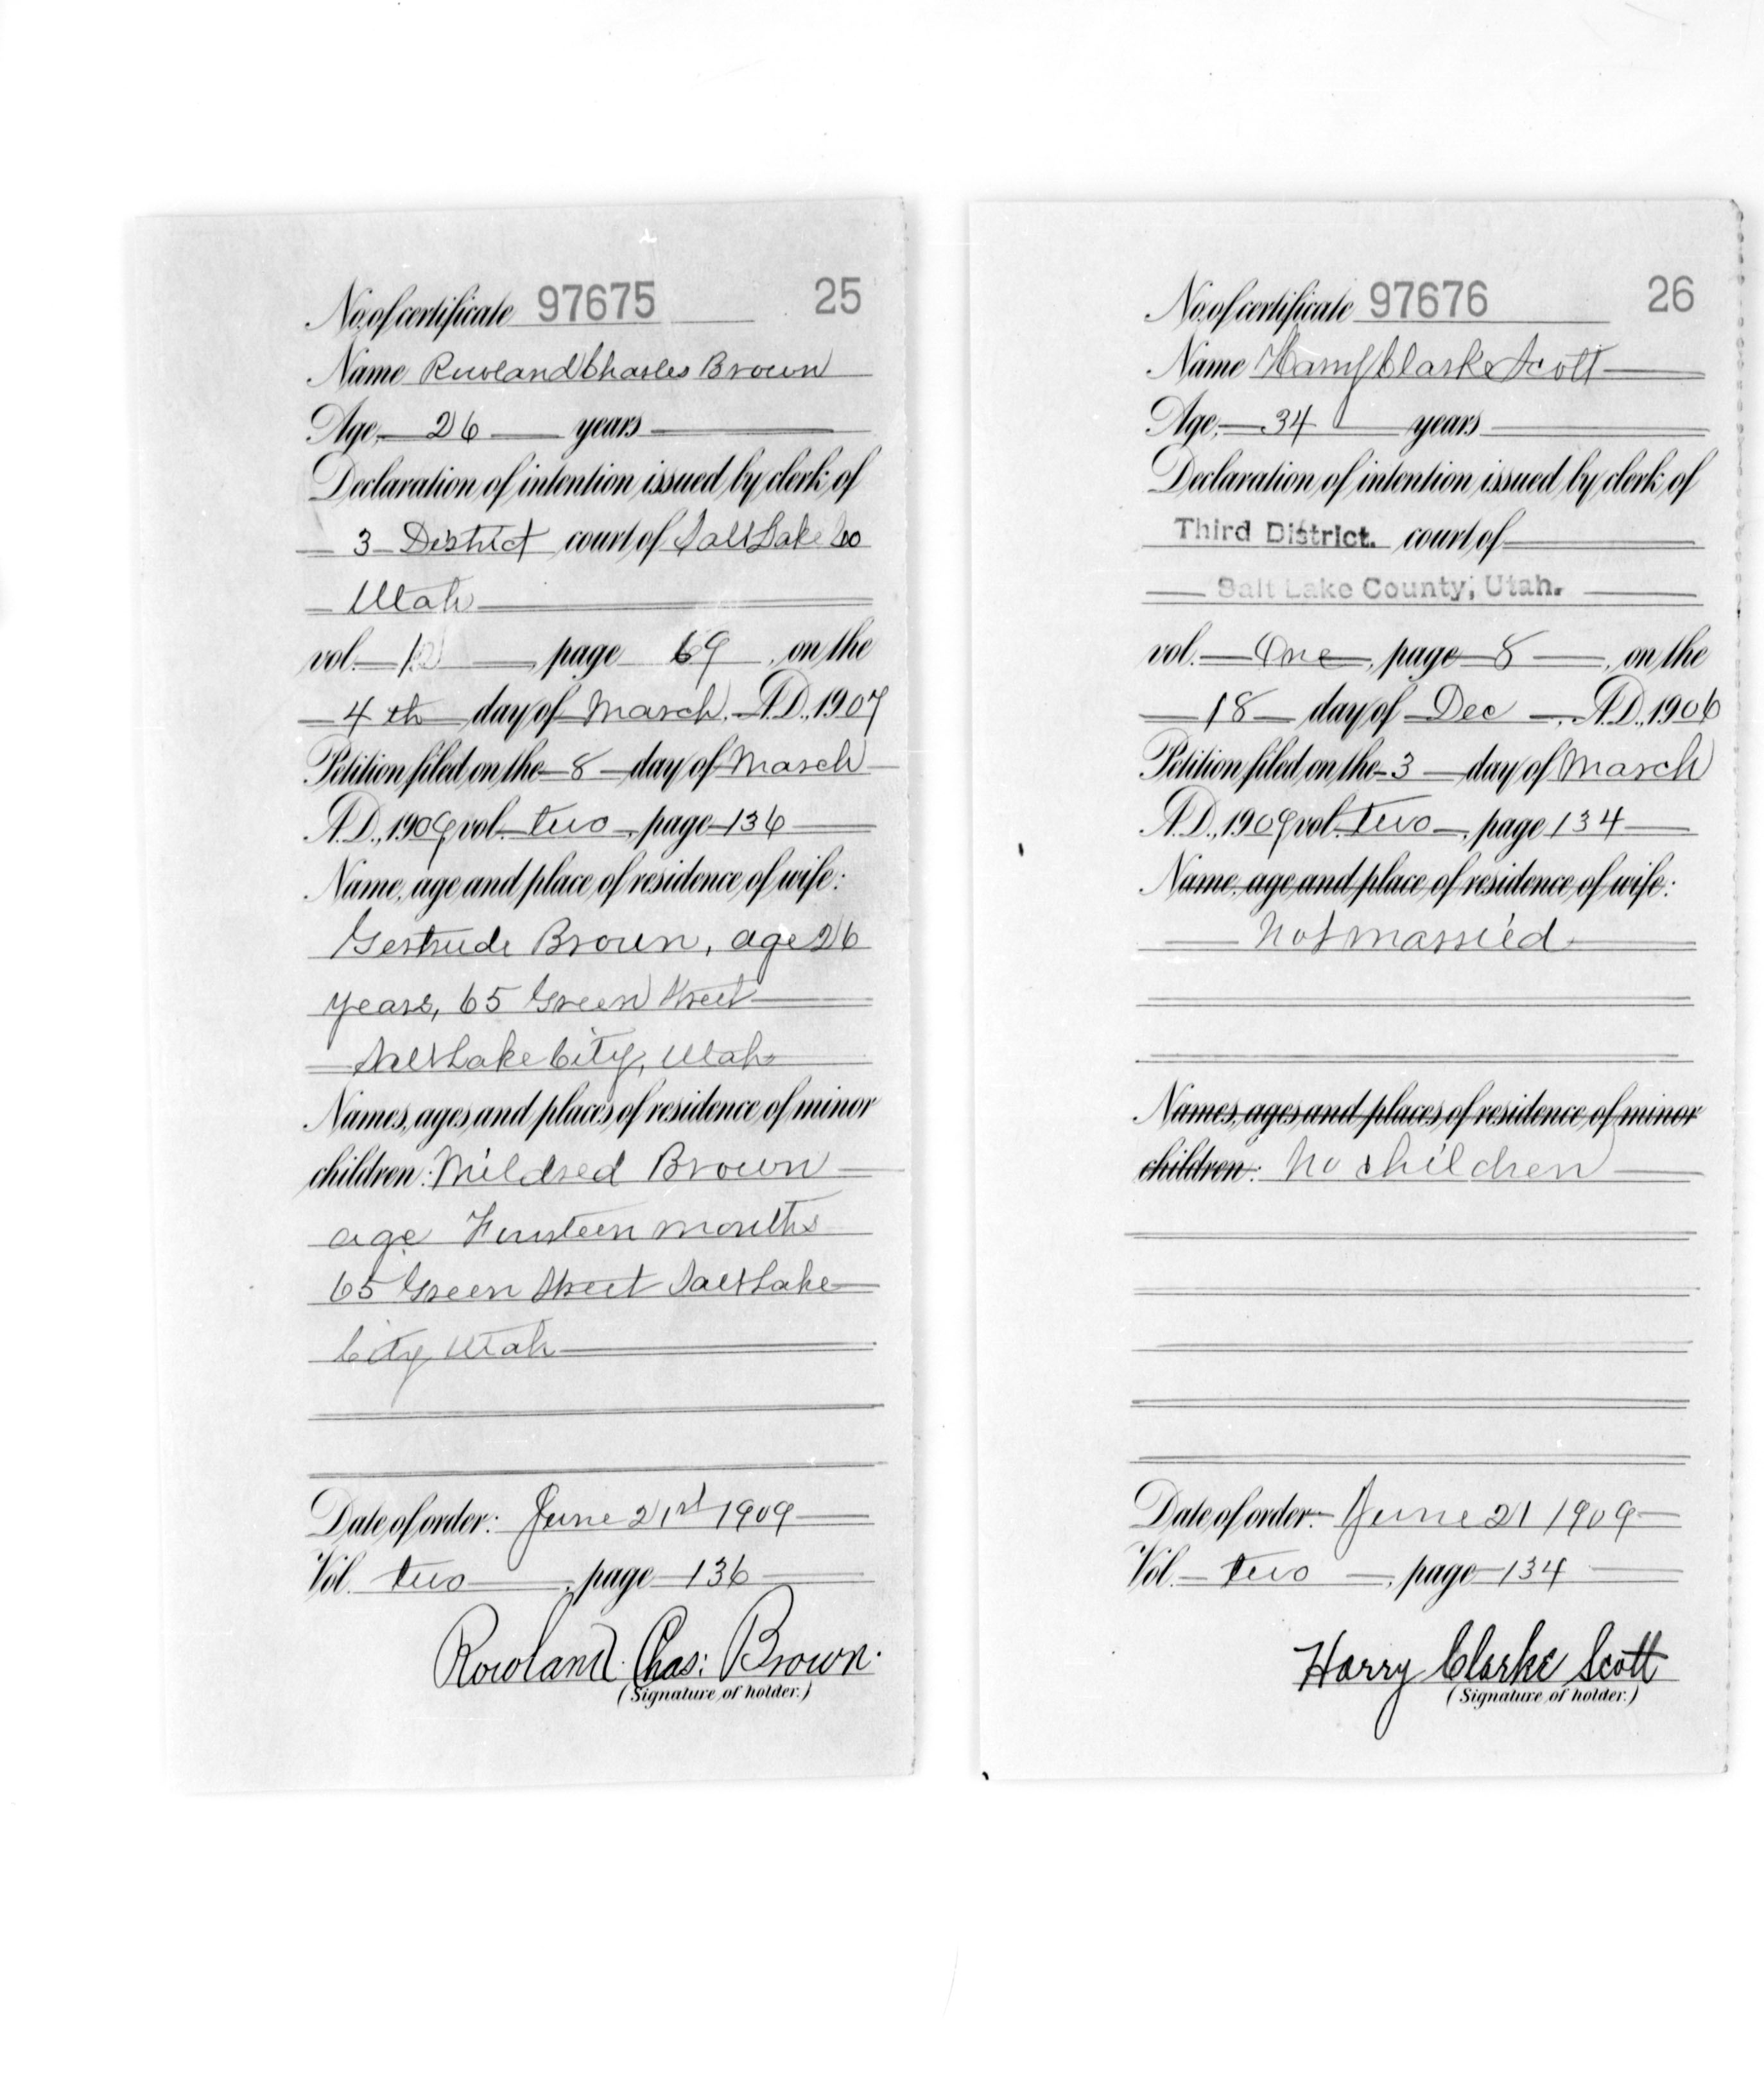 No. of certificate 97675 25
Name Rowland Charles Brown
Age, 26 years
Declaration of intention issued by clerk of
3 District court of Salt Lake Co
Utah
vol. page 69, on the
4th day of March, A.D., 1907
Petition filed on the 8 day of March
A.D., 1909 vol. two, page 136
Name, age and place of residence of wife:
Gertrude Brown, age 26
years, 65 Green Street
Salt Lake City, Utah
Names, ages and places of residence of minor
children: Mildred Brown
age Fourteen months
65 Green Street Salt Lake
City Utah
Date of order: June 21st 1909
Vol. two, page 136
Rowland Chas: Brown.
(Signature of holder.)
No. of certificate 97676 26
Name Harry Clarke Scott
Age, 34 years
Declaration of intention issued by clerk of
Third District. court of
Salt Lake County, Utah.
vol. One, page 8, on the
18 day of Dec, A.D., 1906
Petition filed on the 3 day of March
A.D., 1909 vol. two, page 134
Name, age and place of residence of wife:
Not married
Names, ages and places of residence of minor
children: No children
Date of order: June 21 1909
Vol. two, page 134
Harry Clarke Scott
(Signature of holder.)